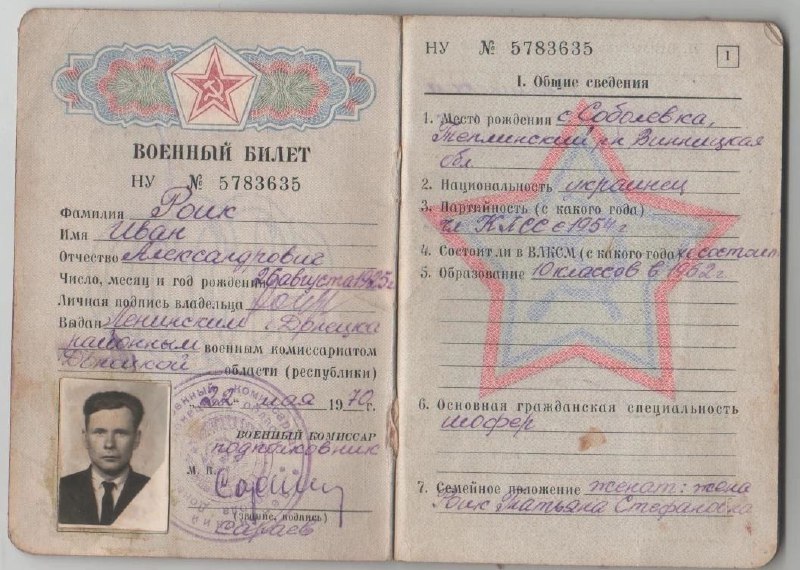 ВОЕННЫЙ БИЛЕТ
НУ № 5783635
Фамилия Роик
Имя Иван
Отчество Александрович
Число, месяц и год рождения 26 августа 1925 г
Личная подпись владельца Роик
Выдан Ленинским г. Донецка
районным военным комиссариатом
Донецкой области (республики)
"22" мая 1970 г.
ВОЕННЫЙ КОМИССАР
подполковник
М. П.
(звание, подпись)
Сараев
НУ № 5783635
1
I. Общие сведения
1. Место рождения с. Соболевка,
Теплинский р-н Винницкая
обл
2. Национальность украинец
3. Партийность (с какого года)
чл КПСС с 1954 г
4. Состоит ли в ВЛКСМ (с какого года) не состоит
5. Образование 10 классов в 1962 г
6. Основная гражданская специальность
шофер
7. Семейное положение женат: жена
Роик Татьяна Стефановна